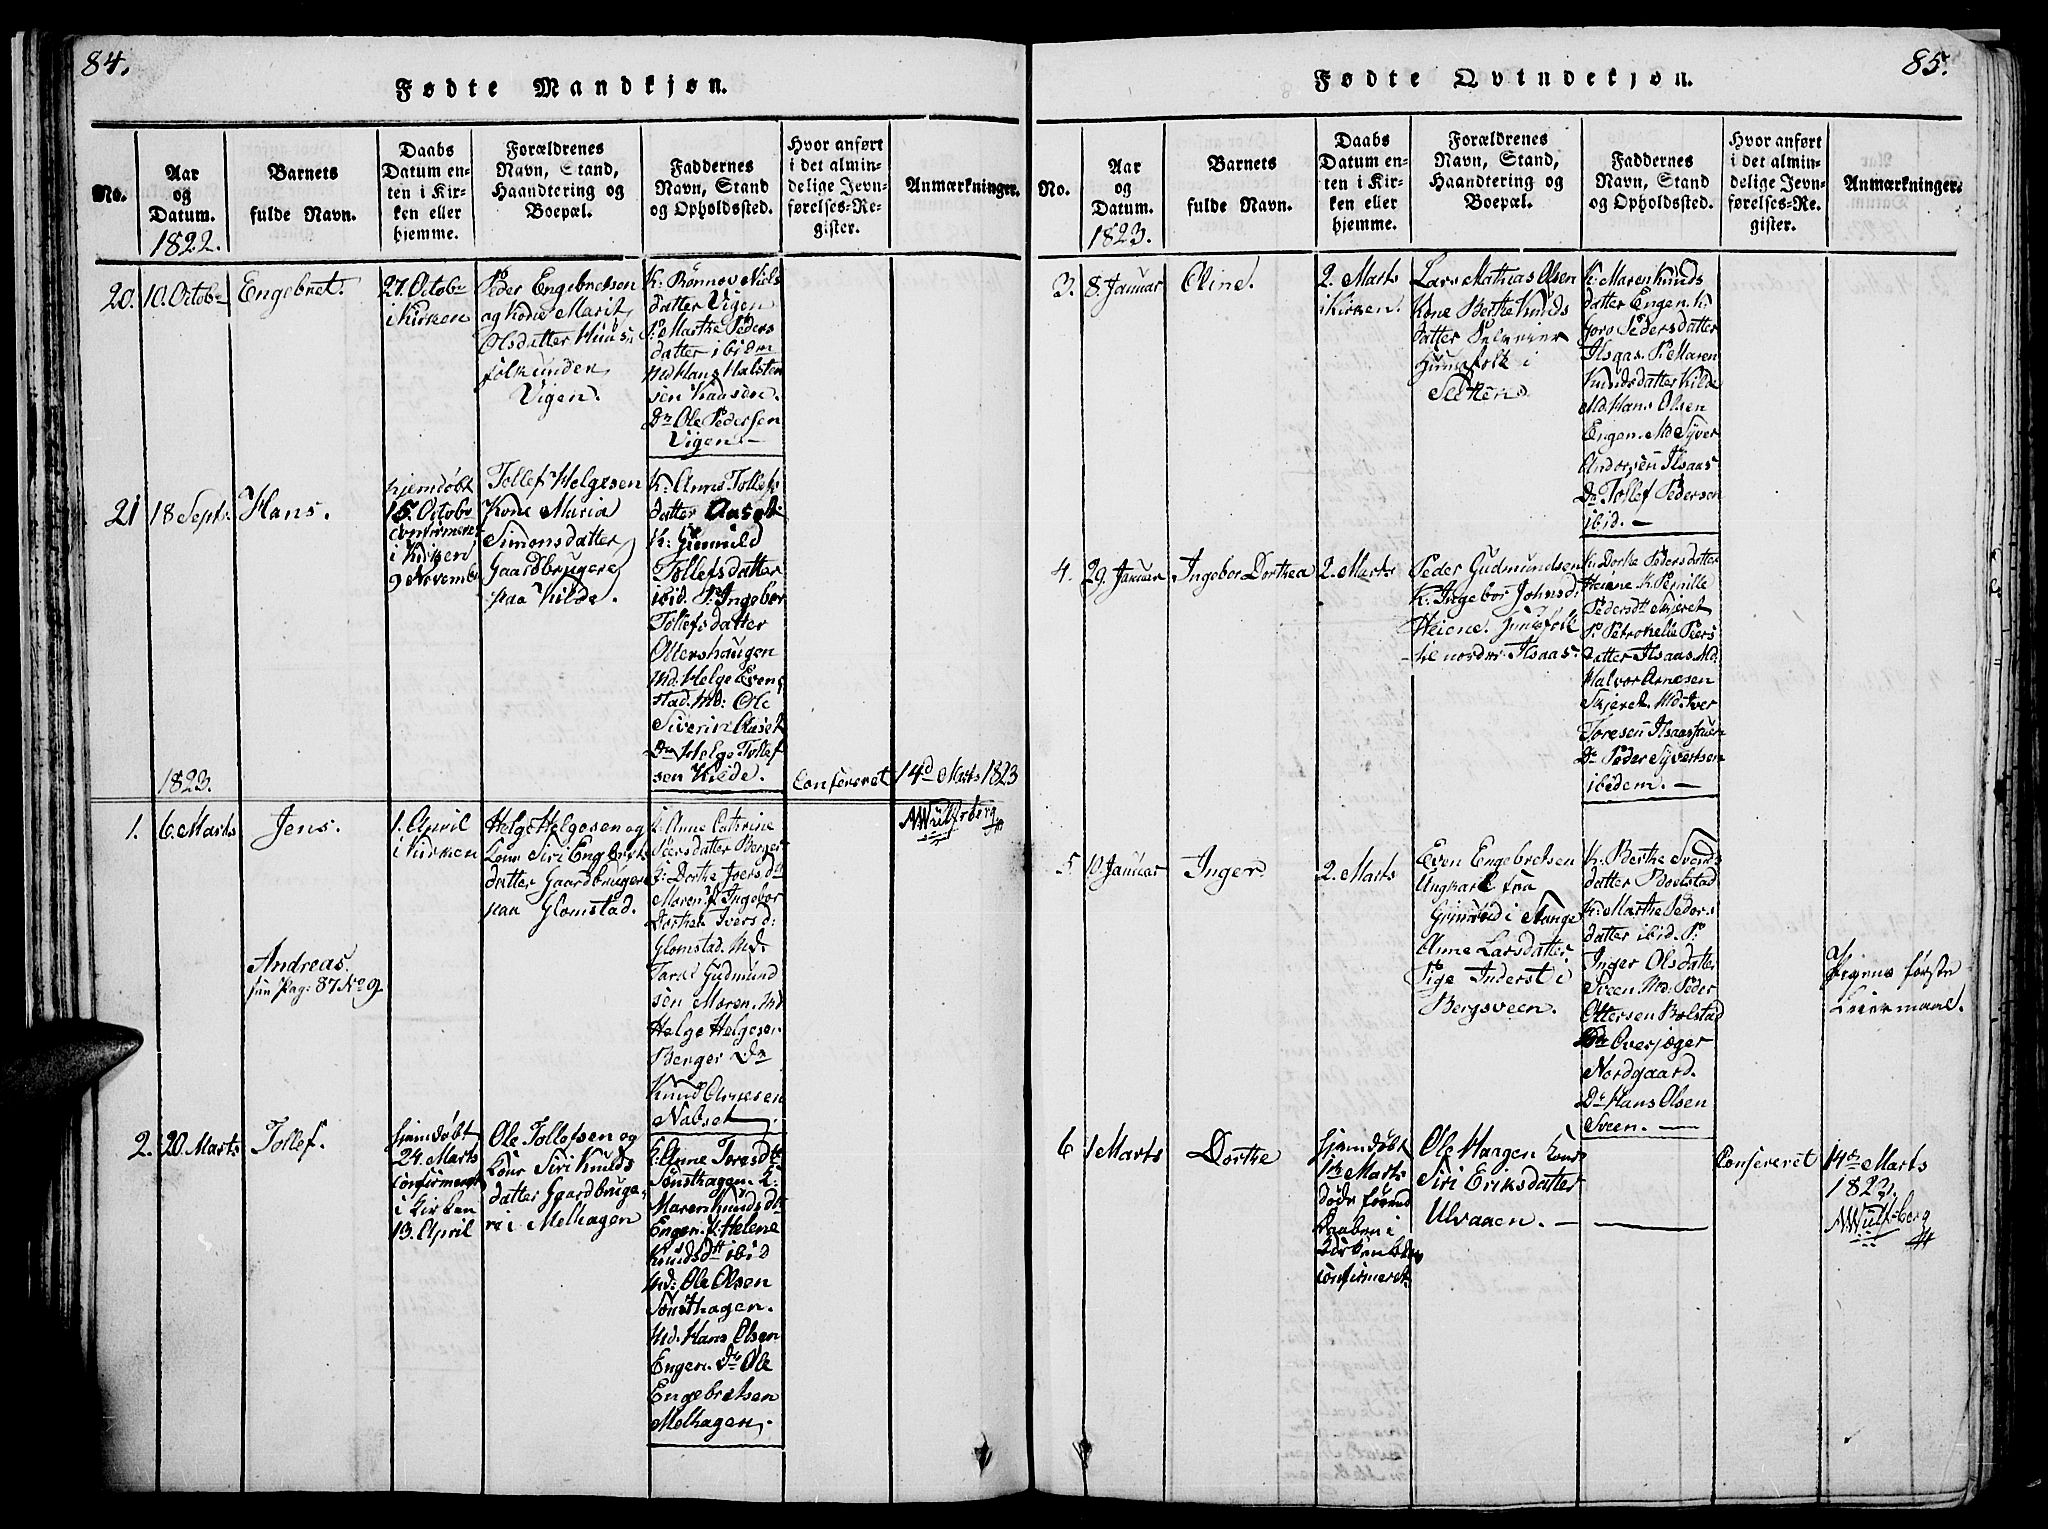 84.
Fødte Mandkjøn.
No.
Aar
og
Datum.
1822.
Barnets
fulde Navn.
Daabs
Datum en-
ten i Kir-
ken eller
hjemme.
Forældrenes
Navn, Stand,
Haandtering og
Boepæl.
Faddernes
Navn, Stand
og Opholdssted.
Hvor anført
i det almin-
delige Jevn-
førelses-Re-
gister.
Anmærkninger.
20.
10. Octobr
Engebret.
27. Octobr
i Kirken
Peder Engebretsen
og Kone Marit
Olsdatter Huus
folk unden
Vigen.
K: Rønnov Niels
datter Vigen
P: Marthe Peders
datter ibidm
Md Hans Halsten
sen Kaasen.
Dr Ole Pedersen
Vigen. –
21
18 Septr
Hans.
hjemdøbt
15. Octobr
confirmeret
i Kirken
9 Novembr
Tollef Helgesen
Kone Maria
Simonsdatter
Gaardbrugere
paa Kilde.
K: Anne Tollefs
datter Aaset
K: Gunnild
Tollefsdatter
ibid. P: Ingebor
Tollefsdatter
Ottershaugen
Md. Helge Even
stad. Md: Ole
Siverin Aaset
Dr Helge Tollef
sen Kilde.
Confereret
14d Marts 1823
NWulfsberg
1823.
1.
6. Marts
Jens.
1. April
i Kirken
Helge Helgesen og
Kone Siri Engebrets
datter Gaardbrugere
paa Glomstad.
K: Anne Cathrine
Peersdatter Berger
K: Dorthe Joersdtt
Moren. P: Ingebor
Dorthea Ivers d:
Glomstad. Md.
Taral Gudmund
sen Moren. Md
Helge Helgesen
Berger Dr
Knud Arnesen
Nabset
Andreas.
see Pag: 87 No 9.
2.
20. Marts
Tollef.
hjemdøbt
24. Marts
confirmeret
i Kirken
13. April
Ole Tollefsen og
Kone Siri Knuds
datter Gaardbruge
re i Melhagen
K: Anne Toresdtt
Sønsthagen. K:
Maren Knudsdtt
Engen. P: Helene
Knudsdtt ibid
Md: Ole Olsen
Sønsthagen.
Md. Hans Olsen
Engen. Dr Ole
Engebretsen
Melhagen.
85.
Fødte Qvindekjøn.
No.
Aar
og
Datum.
1823.
Barnets
fulde Navn.
Daabs
Datum en-
ten i Kir-
ken eller
hjemme.
Forældrenes
Navn, Stand,
Haandtering og
Boepæl.
Faddernes
Navn, Stand
og Opholdssted.
Hvor anført
i det almin-
delige Jevn-
førelses-Re-
gister.
Anmærkninger.
3.
8. Januar
Oline.
2. Marts
i Kirken.
Lars Mathias Olsen
Kone Berthe Knuds
datter
Huusfolk i
K: Maren Knuds
datter Engen. K:
Goro Pedersdatter
Ilsaas. P: Maren
Knudsdatter Kilde
Md. Hans Olsen
Engen. Md Syver
Andersen Ilsaas
Dr Tollef Pedersen
ibid. –
4.
29. Januar
Ingebor Dorthea
2. Marts
Peder Gudmundsen
K. Ingebor Johnsd:
Heiene. Huusfolk
nordre Ilsaas.
K: Dorthe Pedersdatter
Heiene. K. Pernille
Pedersdtt Skjeret
P: Petronelle Peers
datter Ilsaas. Md.
Halvor Arnesen
Skjeret. Md. Iver
Toresen Ilsaas
Dr Peder Syvertsen
ibidem. –
5.
10. Januar
Inger
2. Marts
Even Engebretsen
Ungkarl fra
Grimerud i Stange
Anne Larsdatter
Pige Inderst i
Bergsveen.
K. Berthe Svends
datter Bolstad
K: Marthe Peders
datter ibid. P:
Inger Olsdatter
Sveen Md: Peder
Ottersen Bolstad
Overjæger
Nordgaard.
Dr Hans Olsen
Sveen. –
Pigens første
Leiermaal.
6
1 Marts
Dorthe
hjemdøbt
Marts
døde førend
Daaben i
Kirken blev
confirmeret
Ole Haagen Kone
Siri Eriksdatter
Ulvaaen. –
Confereret
14de Marts
1823.
NWulfsberg